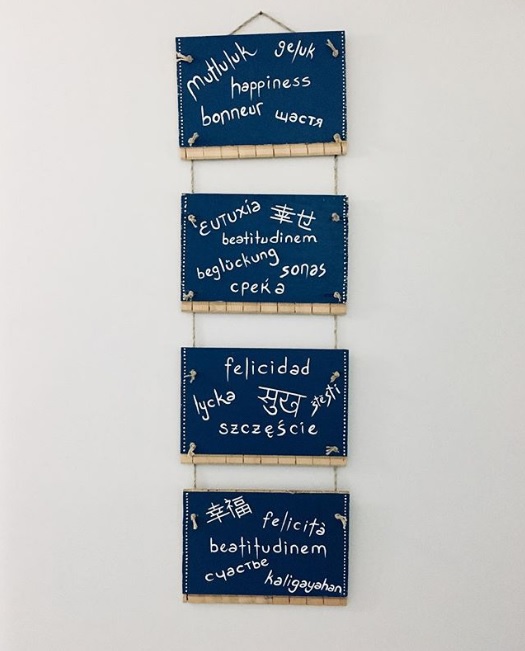 mutluluk geluk
happiness
bonneur щастя
ευτυχία 幸せ
beatitudinem
beglückung sonas
среќа
felicidad
lycka सुख štěstí
szczęście
幸福 felicità
beatitudinem
счастье
kaligayahan